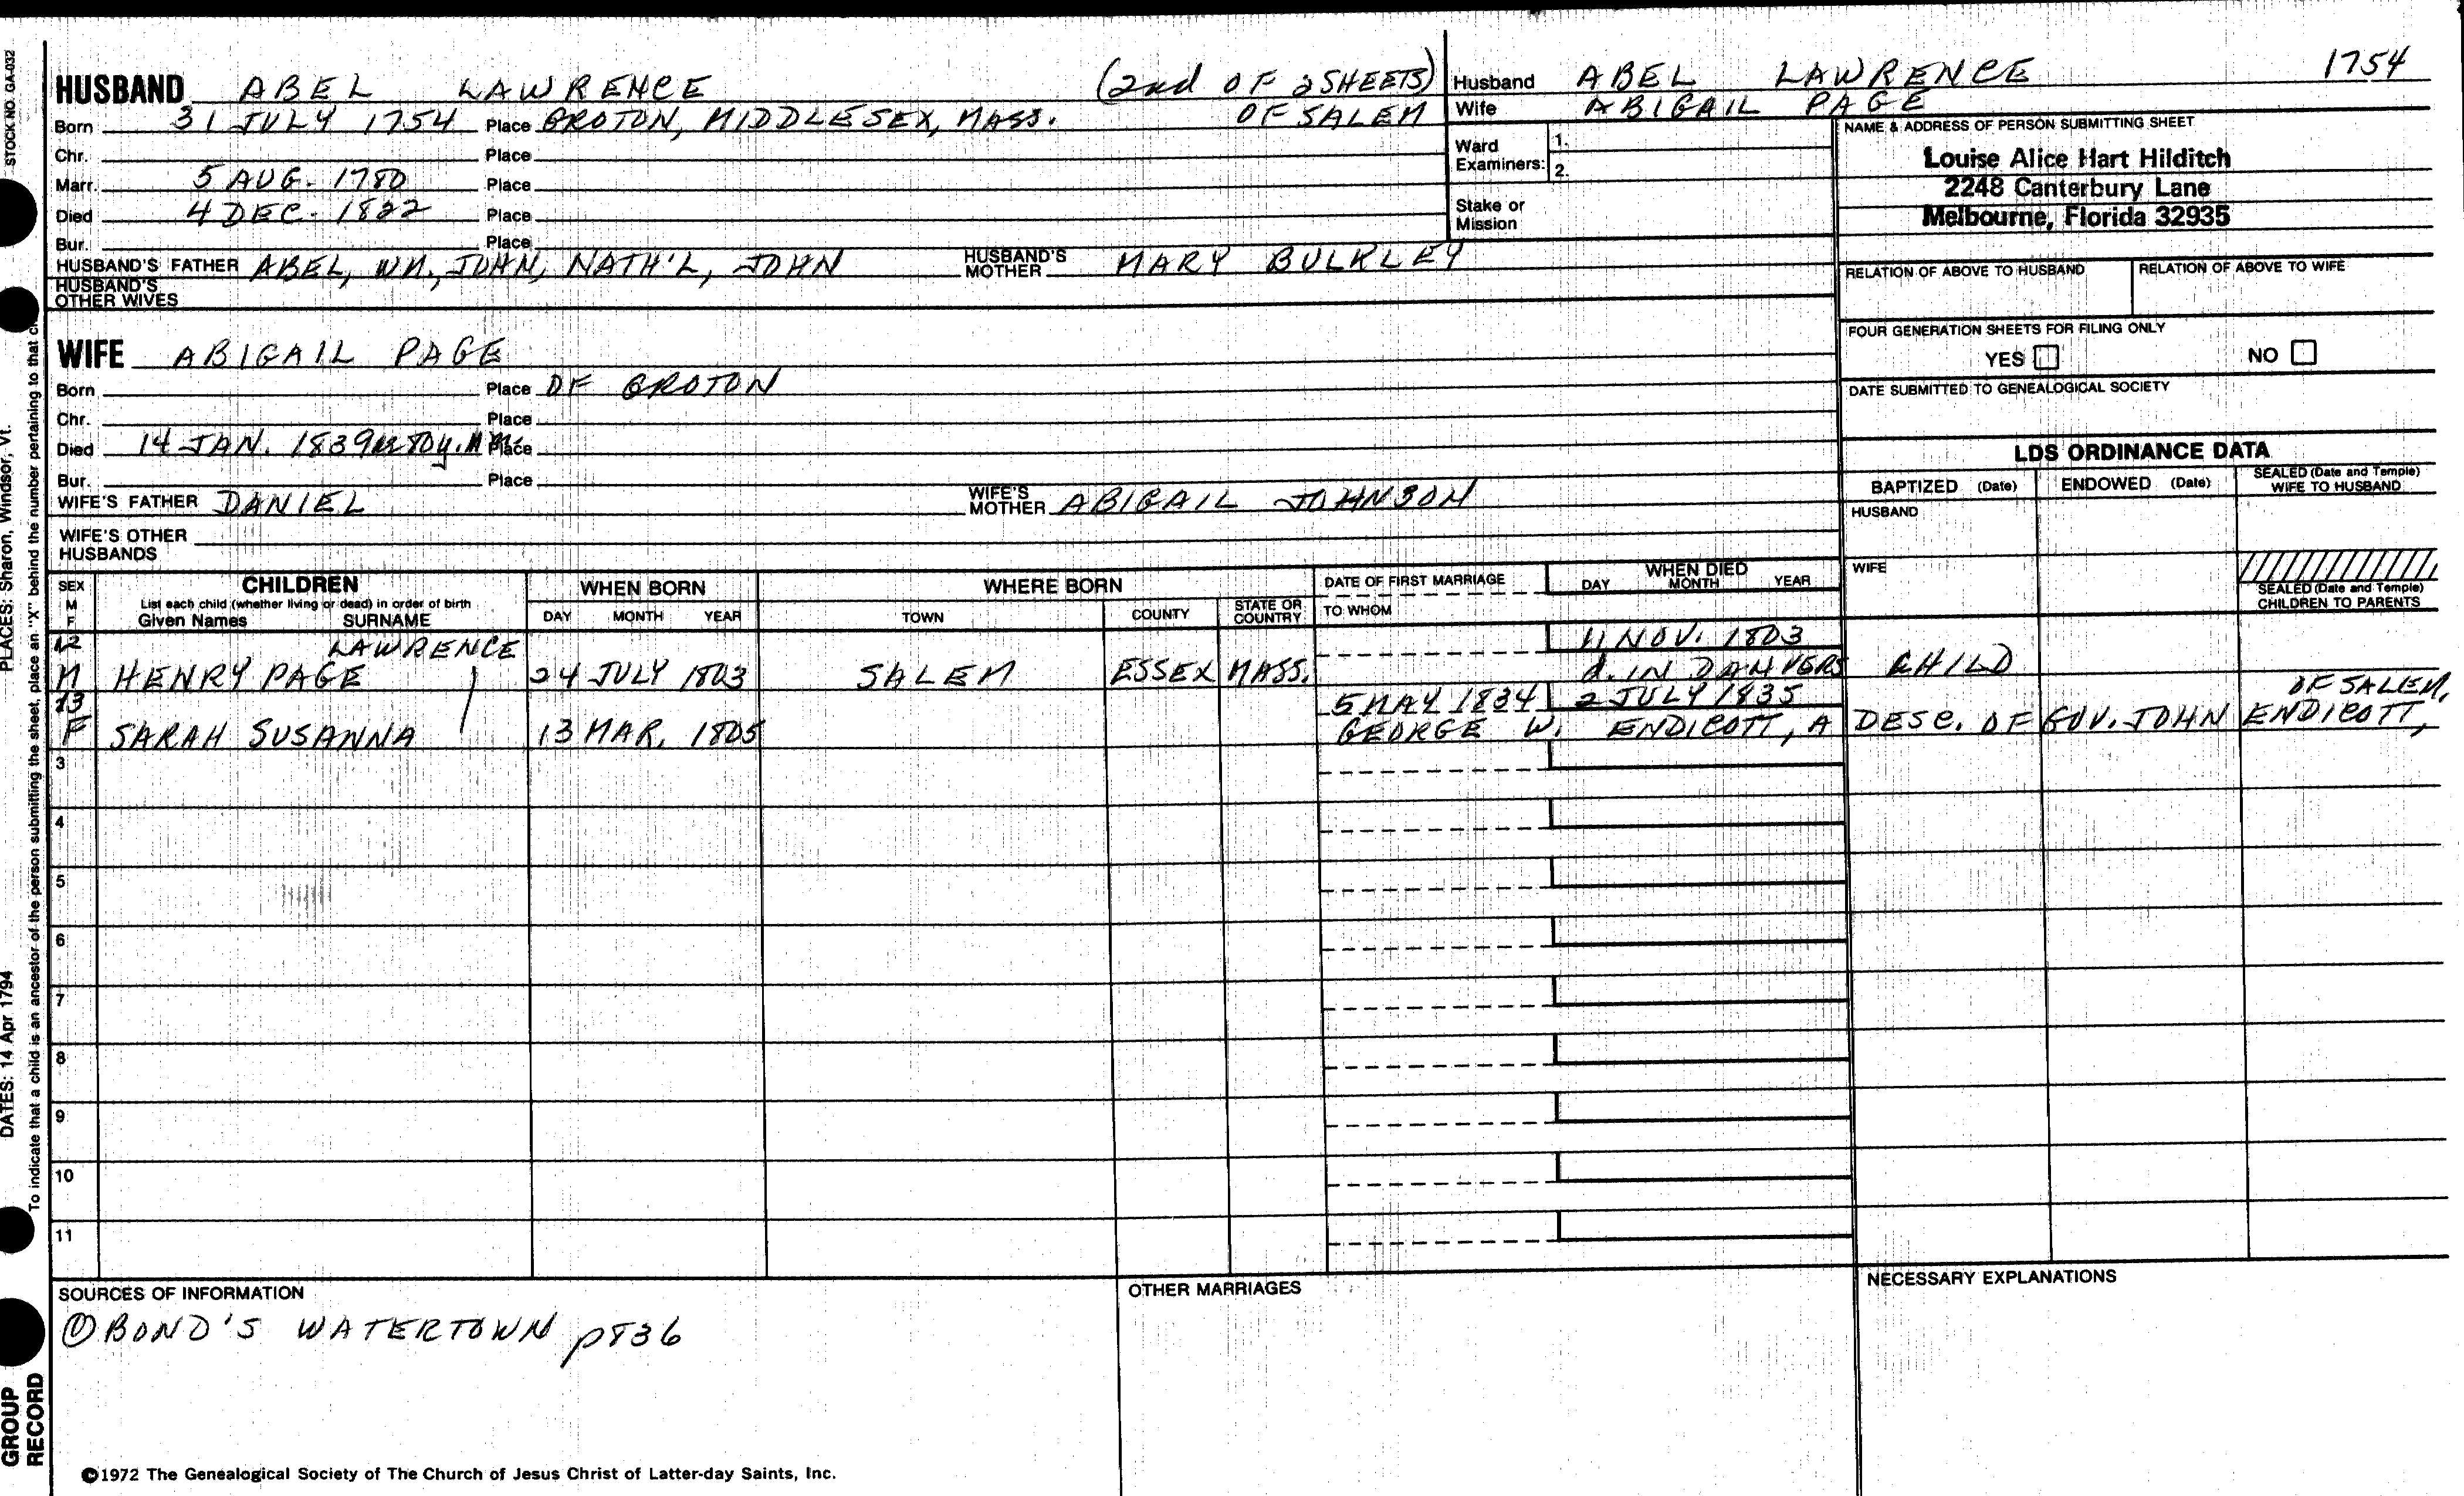 STOCK NO. GA-032
HUSBAND ABEL LAWRENCE (2nd OF 2 SHEETS)
Born 31 JULY 1754 Place GROTON, MIDDLESEX, MASS. OF SALEM
Chr. Place
Marr. 5 AUG. 1780 Place
Died 4 DEC. 1822 Place
Bur. Place
HUSBAND'S FATHER ABEL, WM, JOHN, NATH'L, JOHN HUSBAND'S MOTHER MARY BULKLEY
HUSBAND'S OTHER WIVES
Husband ABEL LAWRENCE 1754
Wife ABIGAIL PAGE
Ward Examiners: 1.
2.
Stake or Mission
NAME & ADDRESS OF PERSON SUBMITTING SHEET
Louise Alice Hart Hilditch
2248 Canterbury Lane
Melbourne, Florida 32935
RELATION OF ABOVE TO HUSBAND RELATION OF ABOVE TO WIFE
FOUR GENERATION SHEETS FOR FILING ONLY
YES NO
DATE SUBMITTED TO GENEALOGICAL SOCIETY
WIFE ABIGAIL PAGE
Born Place OF GROTON
Chr. Place
Died 14 JAN. 1839 80y. Place
Bur. Place
WIFE'S FATHER DANIEL WIFE'S MOTHER ABIGAIL JOHNSON
WIFE'S OTHER HUSBANDS
LDS ORDINANCE DATA
BAPTIZED (Date) ENDOWED (Date) SEALED (Date and Temple) WIFE TO HUSBAND
HUSBAND
WIFE
SEALED (Date and Temple) CHILDREN TO PARENTS
SEX M F CHILDREN WHEN BORN WHERE BORN DATE OF FIRST MARRIAGE WHEN DIED
List each child (whether living or dead) in order of birth
Given Names SURNAME DAY MONTH YEAR TOWN COUNTY STATE OR COUNTRY TO WHOM DAY MONTH YEAR
12 LAWRENCE 11 NOV. 1803
M HENRY PAGE 24 JULY 1803 SALEM ESSEX MASS. d. IN DANVERS CHILD
13 5 MAY 1834 2 JULY 1835 OF SALEM,
F SARAH SUSANNA 13 MAR. 1805 GEORGE W. ENDICOTT, A DESC. OF GOV. JOHN ENDICOTT,
3
4
5
6
7
8
9
10
11
SOURCES OF INFORMATION OTHER MARRIAGES NECESSARY EXPLANATIONS
① BOND'S WATERTOWN p836
©1972 The Genealogical Society of The Church of Jesus Christ of Latter-day Saints, Inc.
PLACES: Sharon, Windsor, Vt.
DATES: 14 Apr 1794
To indicate that a child is an ancestor of the person submitting the sheet, place an "X" behind the number pertaining to that
GROUP
RECORD